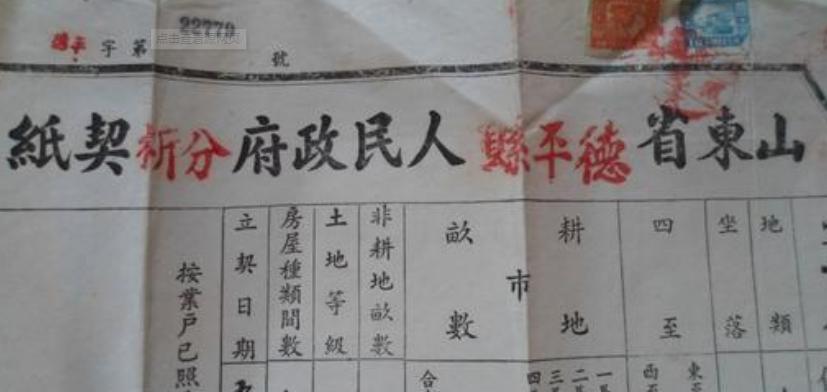 德平字第22779號
点击查看源网页
山東省德平縣人民政府分析契紙
地類
坐落
四至
耕地
市
畝數
非耕地畝數
土地等級
房屋種類間數
立契日期
按業戶已照
東
西
一
二
三
四
合